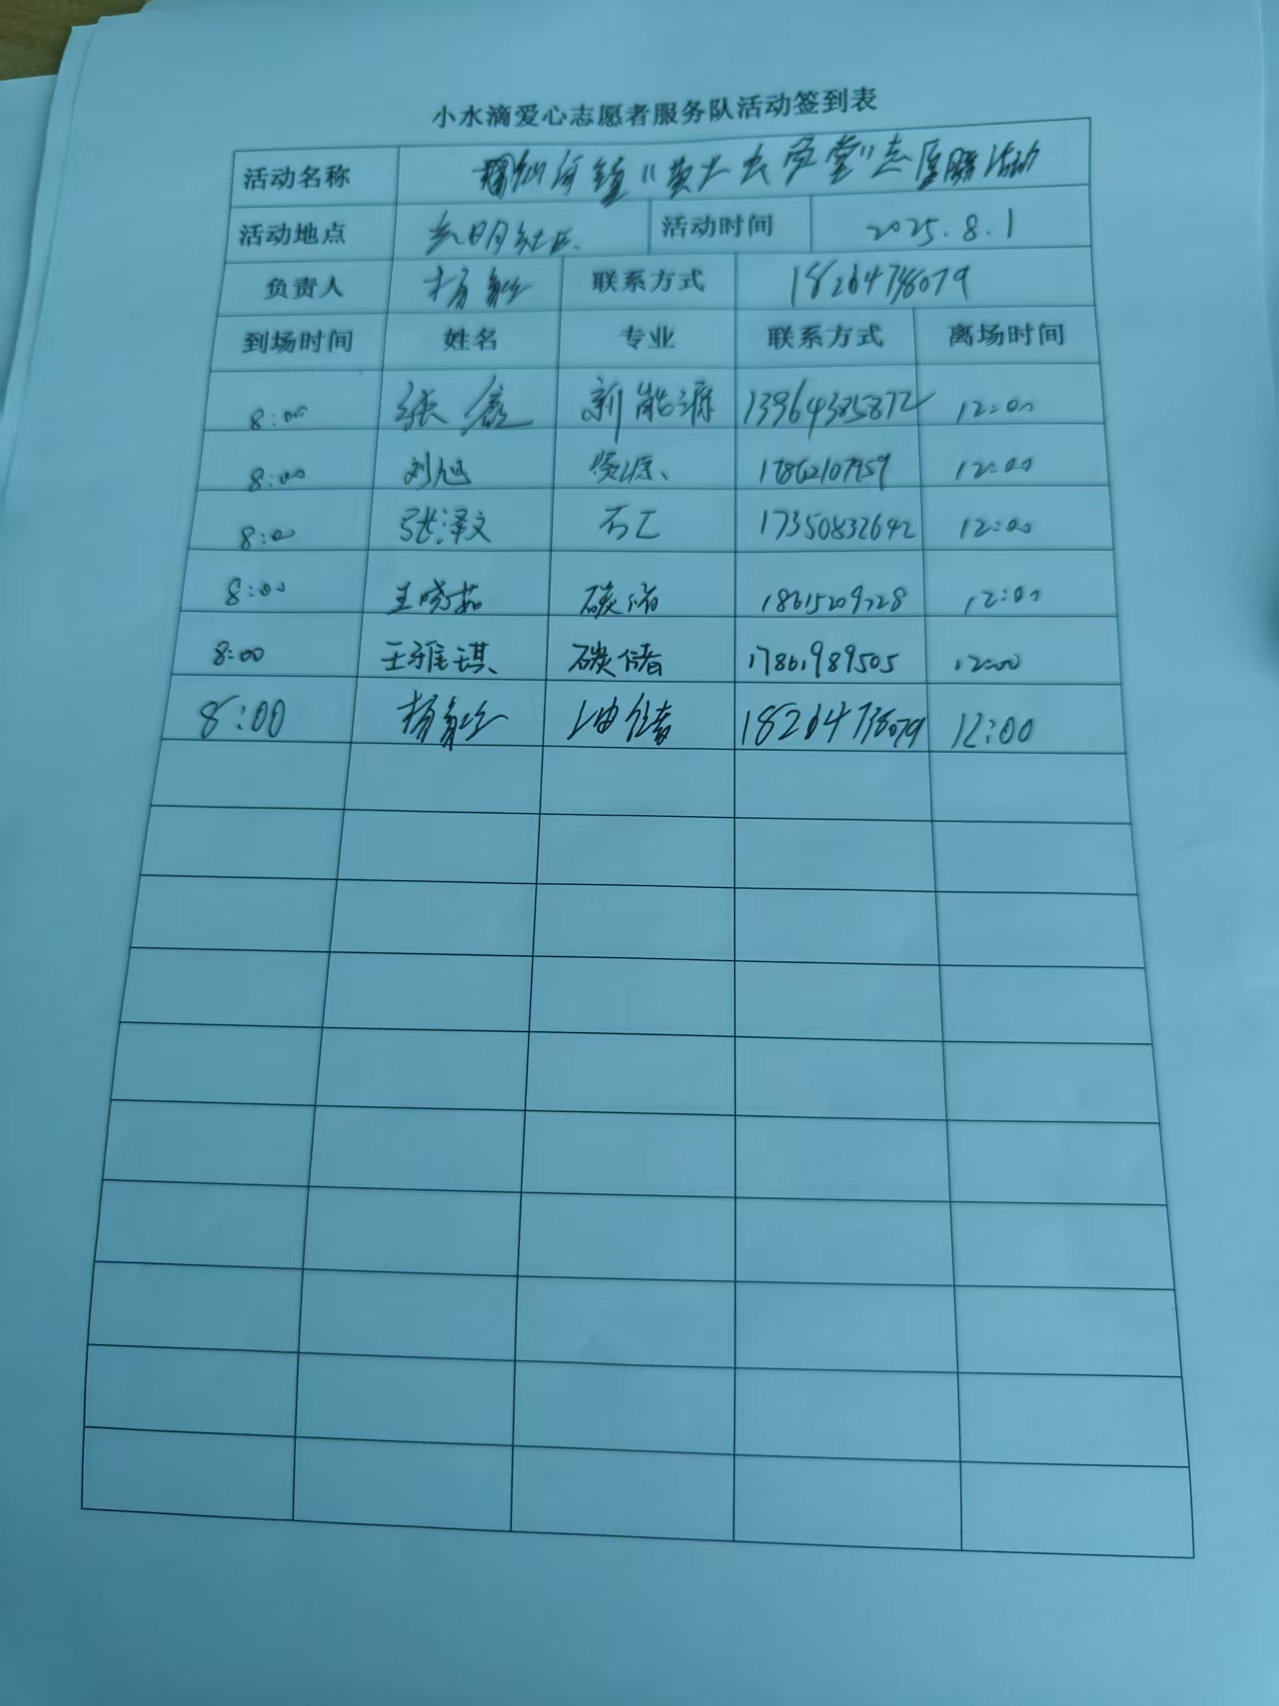 小水滴爱心志愿者服务队活动签到表
活动名称 仙河镇“黄大 学堂”志愿服务活动
活动地点 社区 活动时间 2025.8.1
负责人 杨 联系方式 18264738079
到场时间 姓名 专业 联系方式 离场时间
8:00 张鑫 新能源 13964385872 12:00
8:00 刘旭 资源 12:00
8:00 张泽文 石工 17350832642 12:00
8:00 王晓茹 碳储 18615209728 12:00
8:00 王雅琪 碳储 17861989505 12:00
8:00 杨 油储 18264738079 12:00